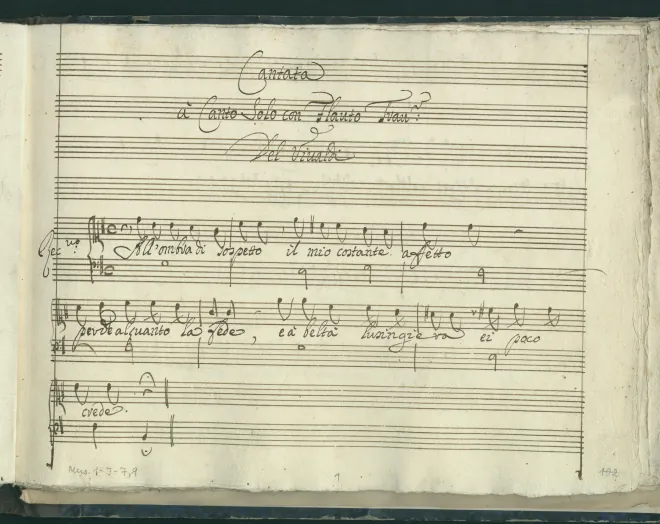 Cantata
à Canto Solo con Flauto Trav.r
Del Vivaldi
Rec.vo
All'ombra di sospetto il mio costante affetto
perde alquanto la fede, e à beltà lusingiera ei poco
crede.
Mus. 1-J-7,9
1